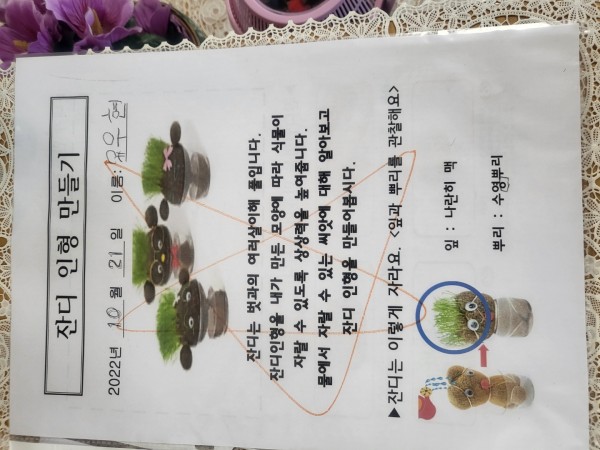 잔디 인형 만들기
2022년 10 월 21 일 이름: 우현
잔디는 벗과의 여러살이해 풀입니다.
잔디인형을 내가 만든 모양에 따라 식물이
자랄 수 있도록 상상력을 높여줍니다.
물에서 자랄 수 있는 씨앗에 대해 알아보고
잔디 인형을 만들어봅시다.
▶잔디는 이렇게 자라요. <잎과 뿌리를 관찰해요>
잎 : 나란히 맥
뿌리 : 수염뿌리